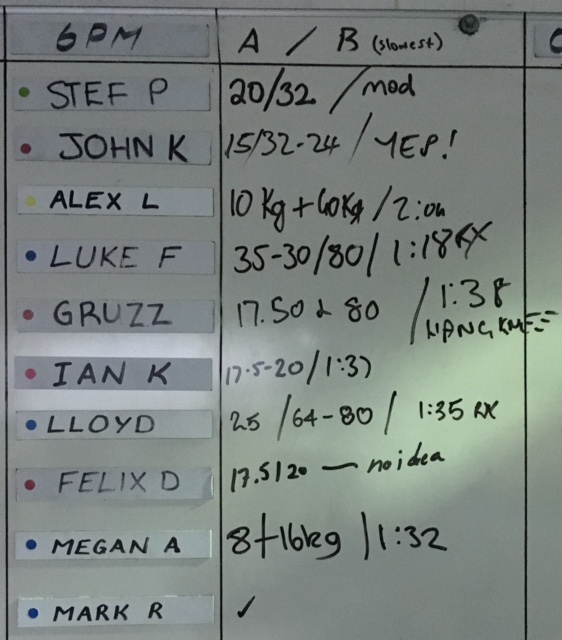 6PM A / B (slowest)
STEF P 20/32 / mod
JOHN K 15/32-24 / YEP!
ALEX L 10 Kg + 60Kg / 2:04
LUKE F 35-30/80/ 1:18 RX
GRUZZ 17.50 & 80 / 1:38
HANG KNEE
IAN K 17.5-20/1:37
LLOYD 25 /64-80 / 1:35 RX
FELIX D 17.5/20 — no idea
MEGAN A 8+16kg / 1:32
MARK R ✓